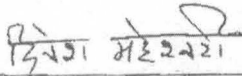 दिनेश महेश्वरी